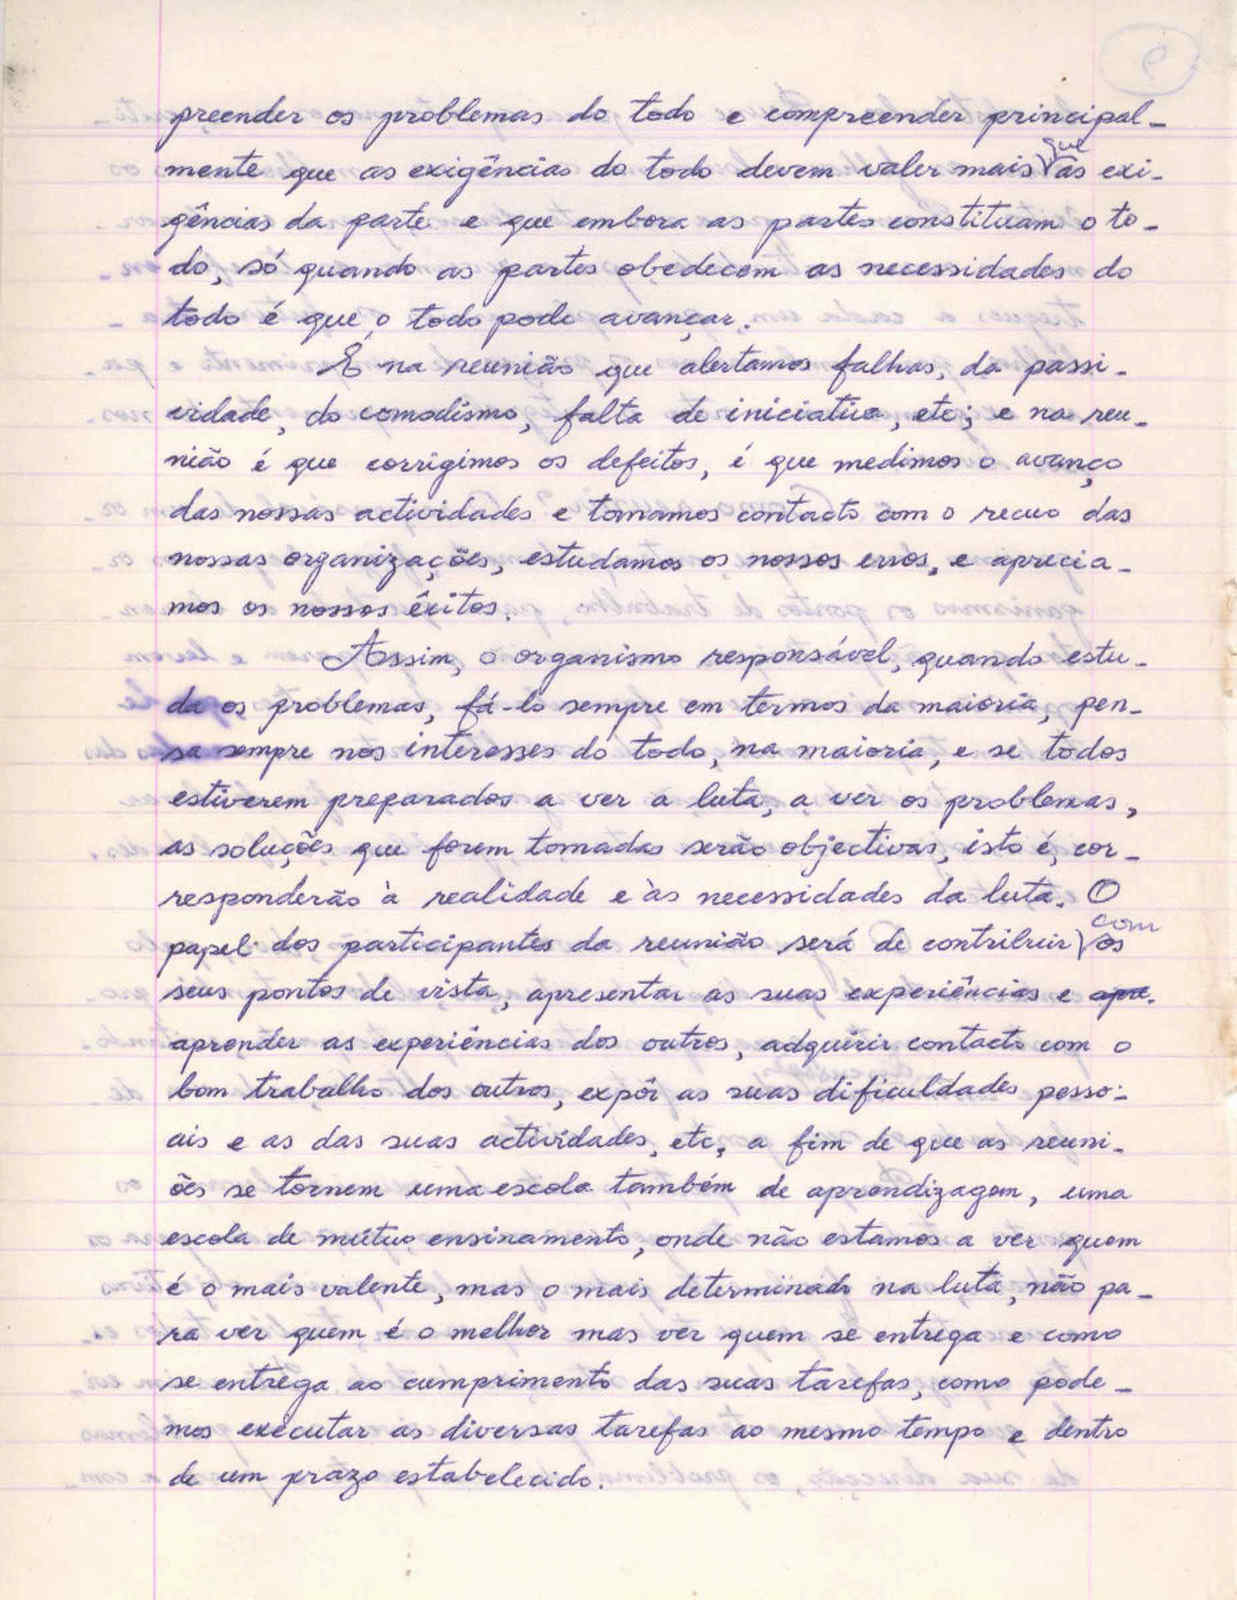 preender os problemas do todo e compreender principal-
mente que as exigências do todo devem valer mais que as exi-
gências da parte e que embora as partes constituam o to-
do, só quando as partes obedecem as necessidades do
todo é que o todo pode avançar.
É na reunião que alertamos falhas, da passi-
vidade, do comodismo, falta de iniciativa, etc; e na reu-
nião é que corrigimos os defeitos, é que medimos o avanço
das nossas actividades e tomamos contacto com o recuo das
nossas organizações, estudamos os nossos erros, e aprecia-
mos os nossos êxitos.
Assim, o organismo responsável, quando estu-
da os problemas, fá-lo sempre em termos da maioria, pen-
sa sempre nos interesses do todo, na maioria, e se todos
estiverem preparados a ver a luta, a ver os problemas,
as soluções que forem tomadas serão objectivas, isto é, cor-
responderão à realidade e às necessidades da luta. O
papel dos participantes da reunião será de contribuir com os
seus pontos de vista, apresentar as suas experiências e apre-
aprender as experiências dos outros, adquirir contacto com o
bom trabalho dos outros, expôr as suas dificuldades pesso-
ais e as das suas actividades, etc, a fim de que as reuni-
ões se tornem uma escola também de aprendizagem, uma
escola de mútuo ensinamento, onde não estamos a ver quem
é o mais valente, mas o mais determinado na luta, não pa-
ra ver quem é o melhor mas ver quem se entrega e como
se entrega ao cumprimento das suas tarefas, como pode-
mos executar as diversas tarefas ao mesmo tempo e dentro
de um prazo estabelecido.